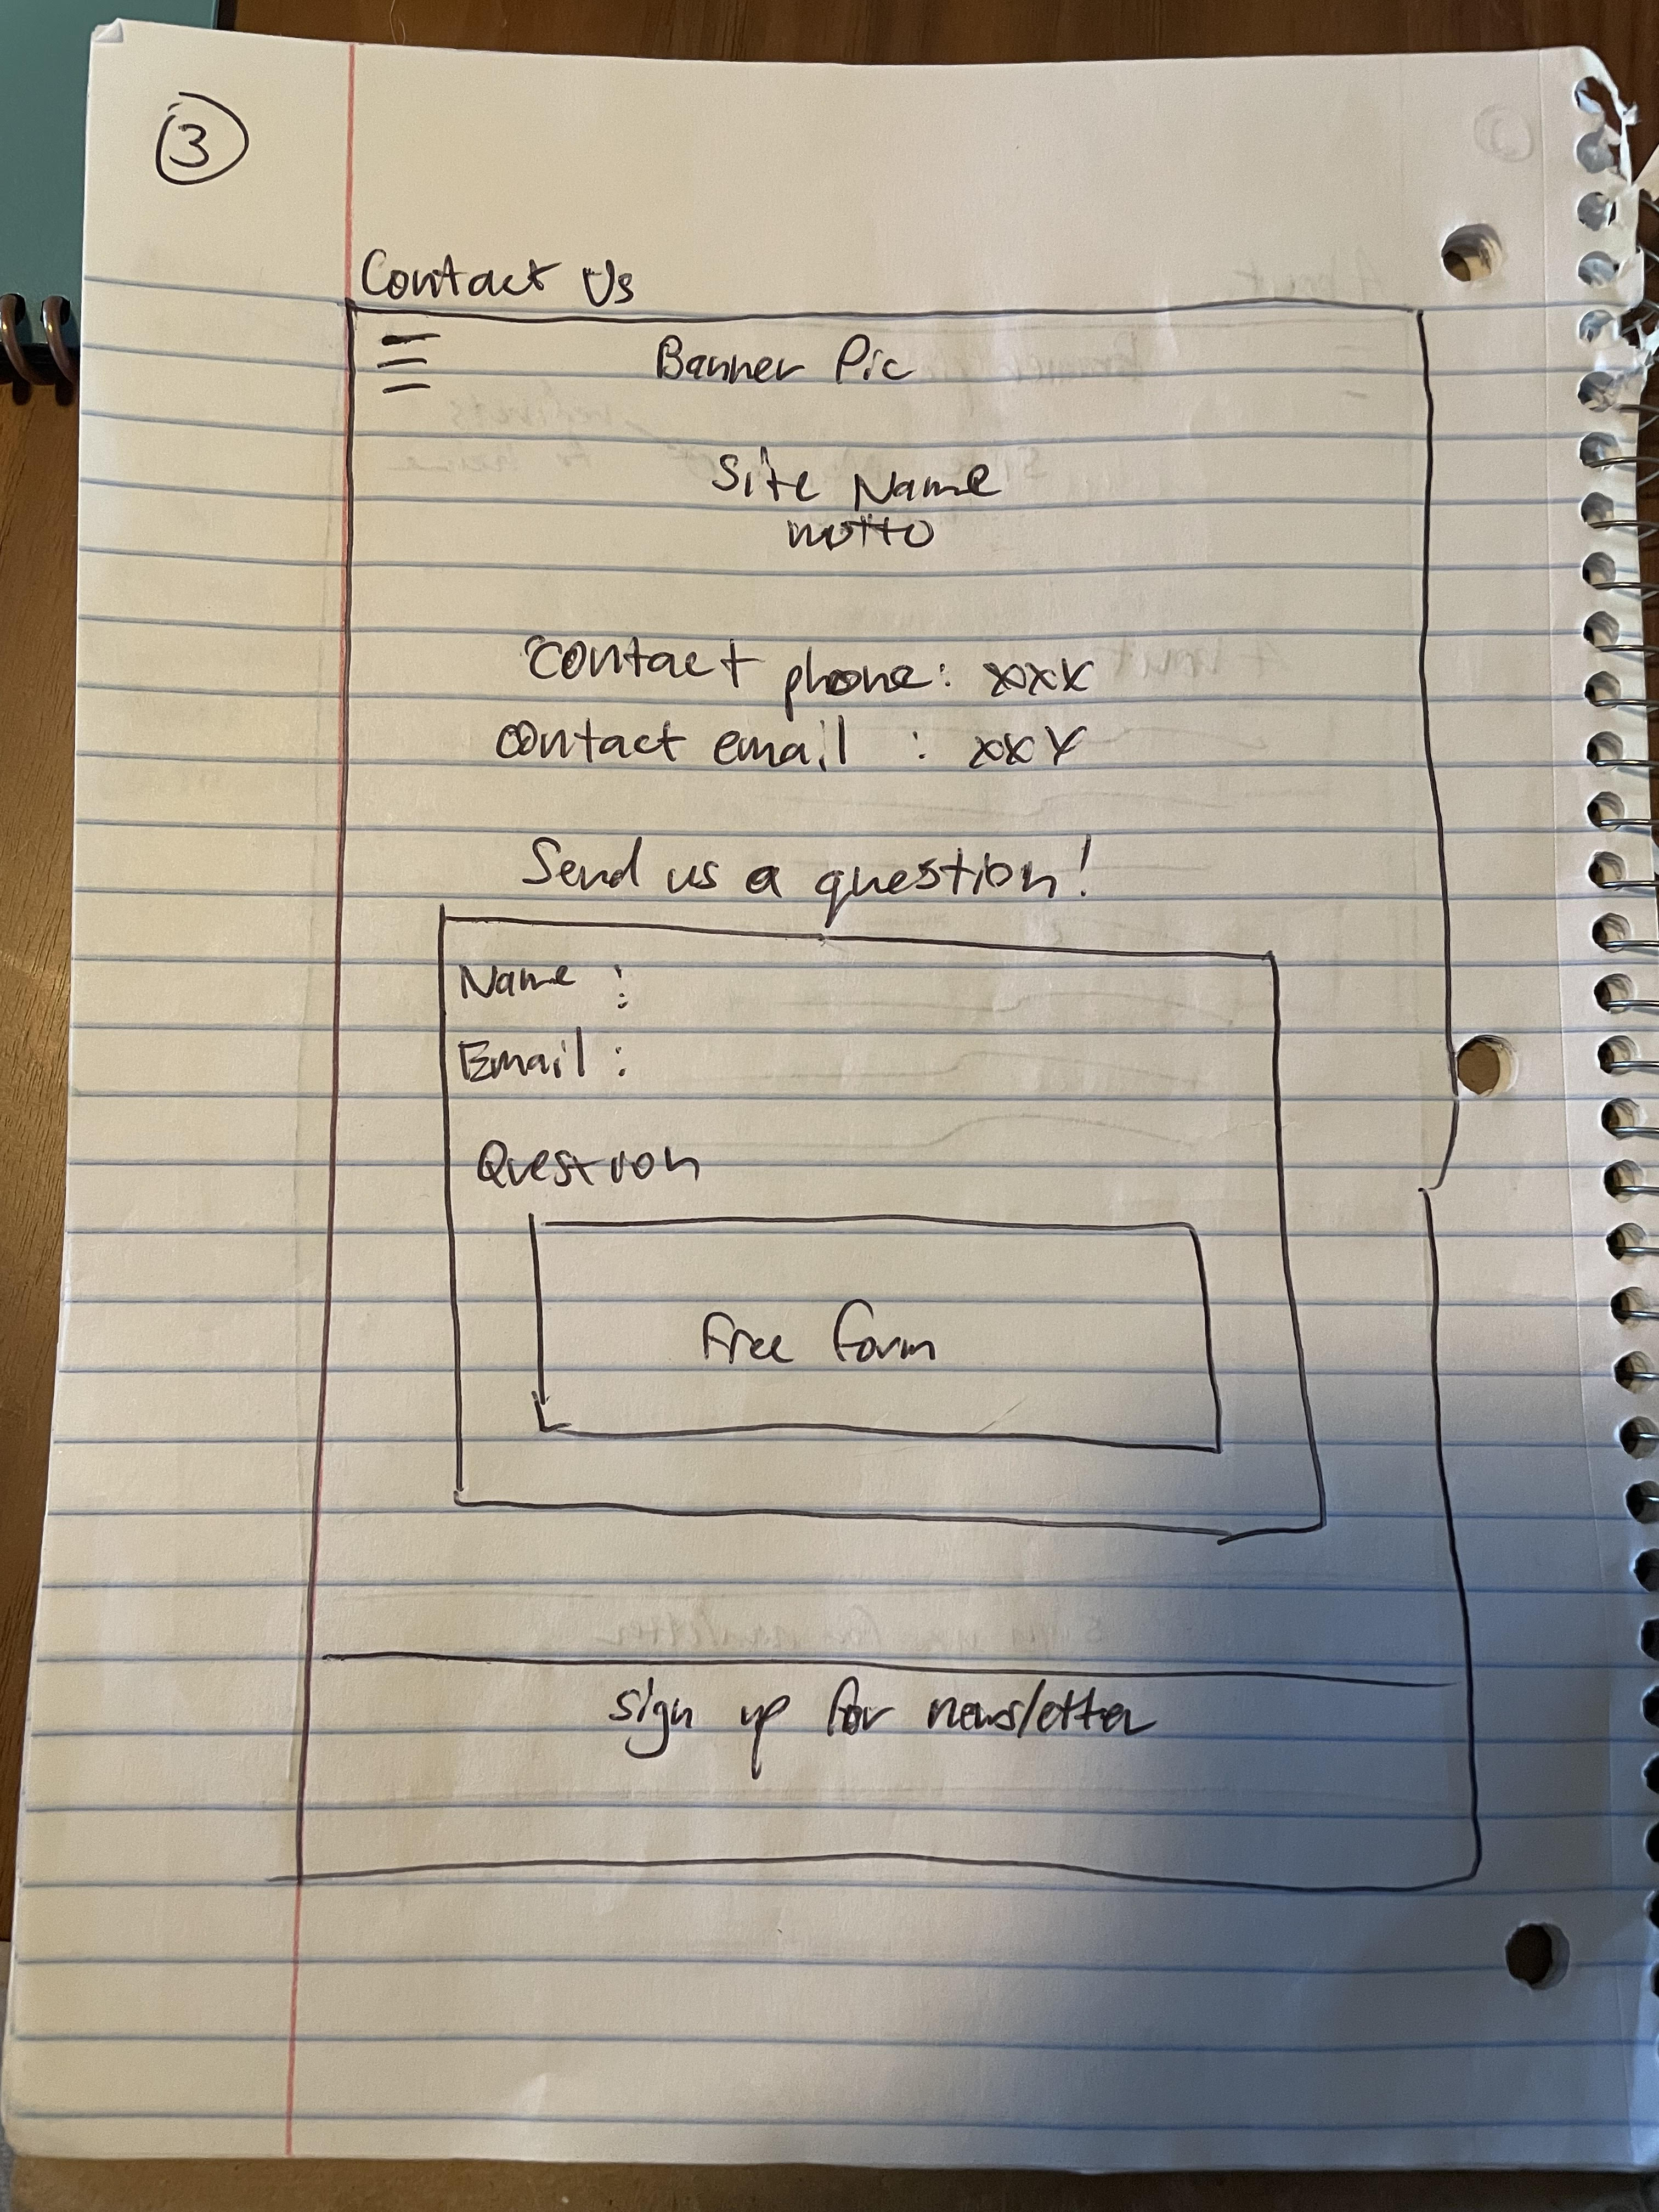 3
Contact Us
Banner Pic
Site Name
motto
Contact phone: xxx
contact email : xxx
Send us a question!
Name :
Email :
Question
free form
sign up for newsletter